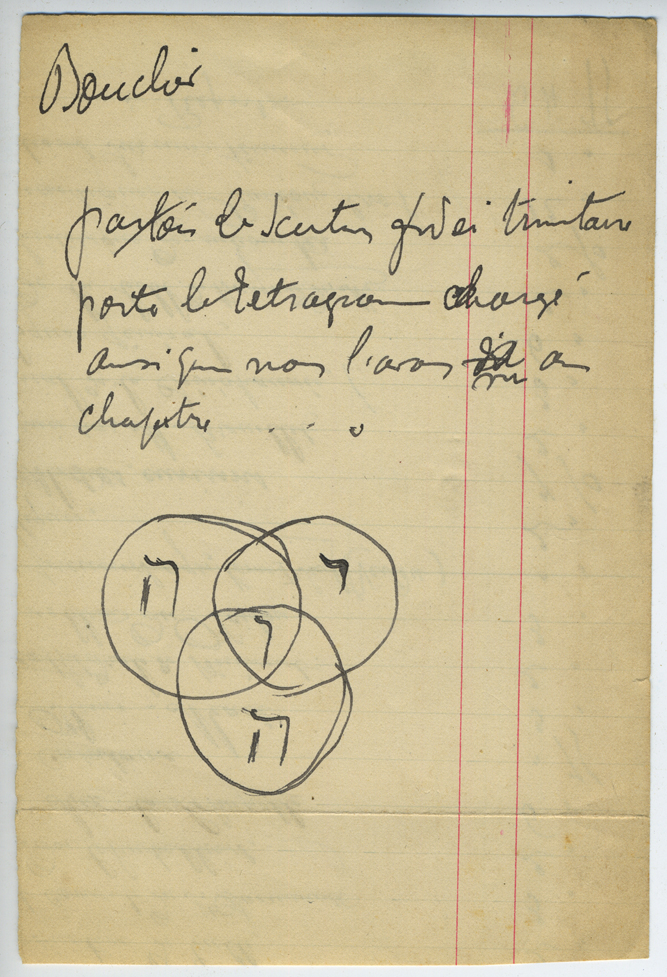 Bouclier
parfois le scutum fidei trinitaire
porte le tetragram chargé
ainsi que nous l'avons vu au
chapitre . . .
ה י
ו
ה